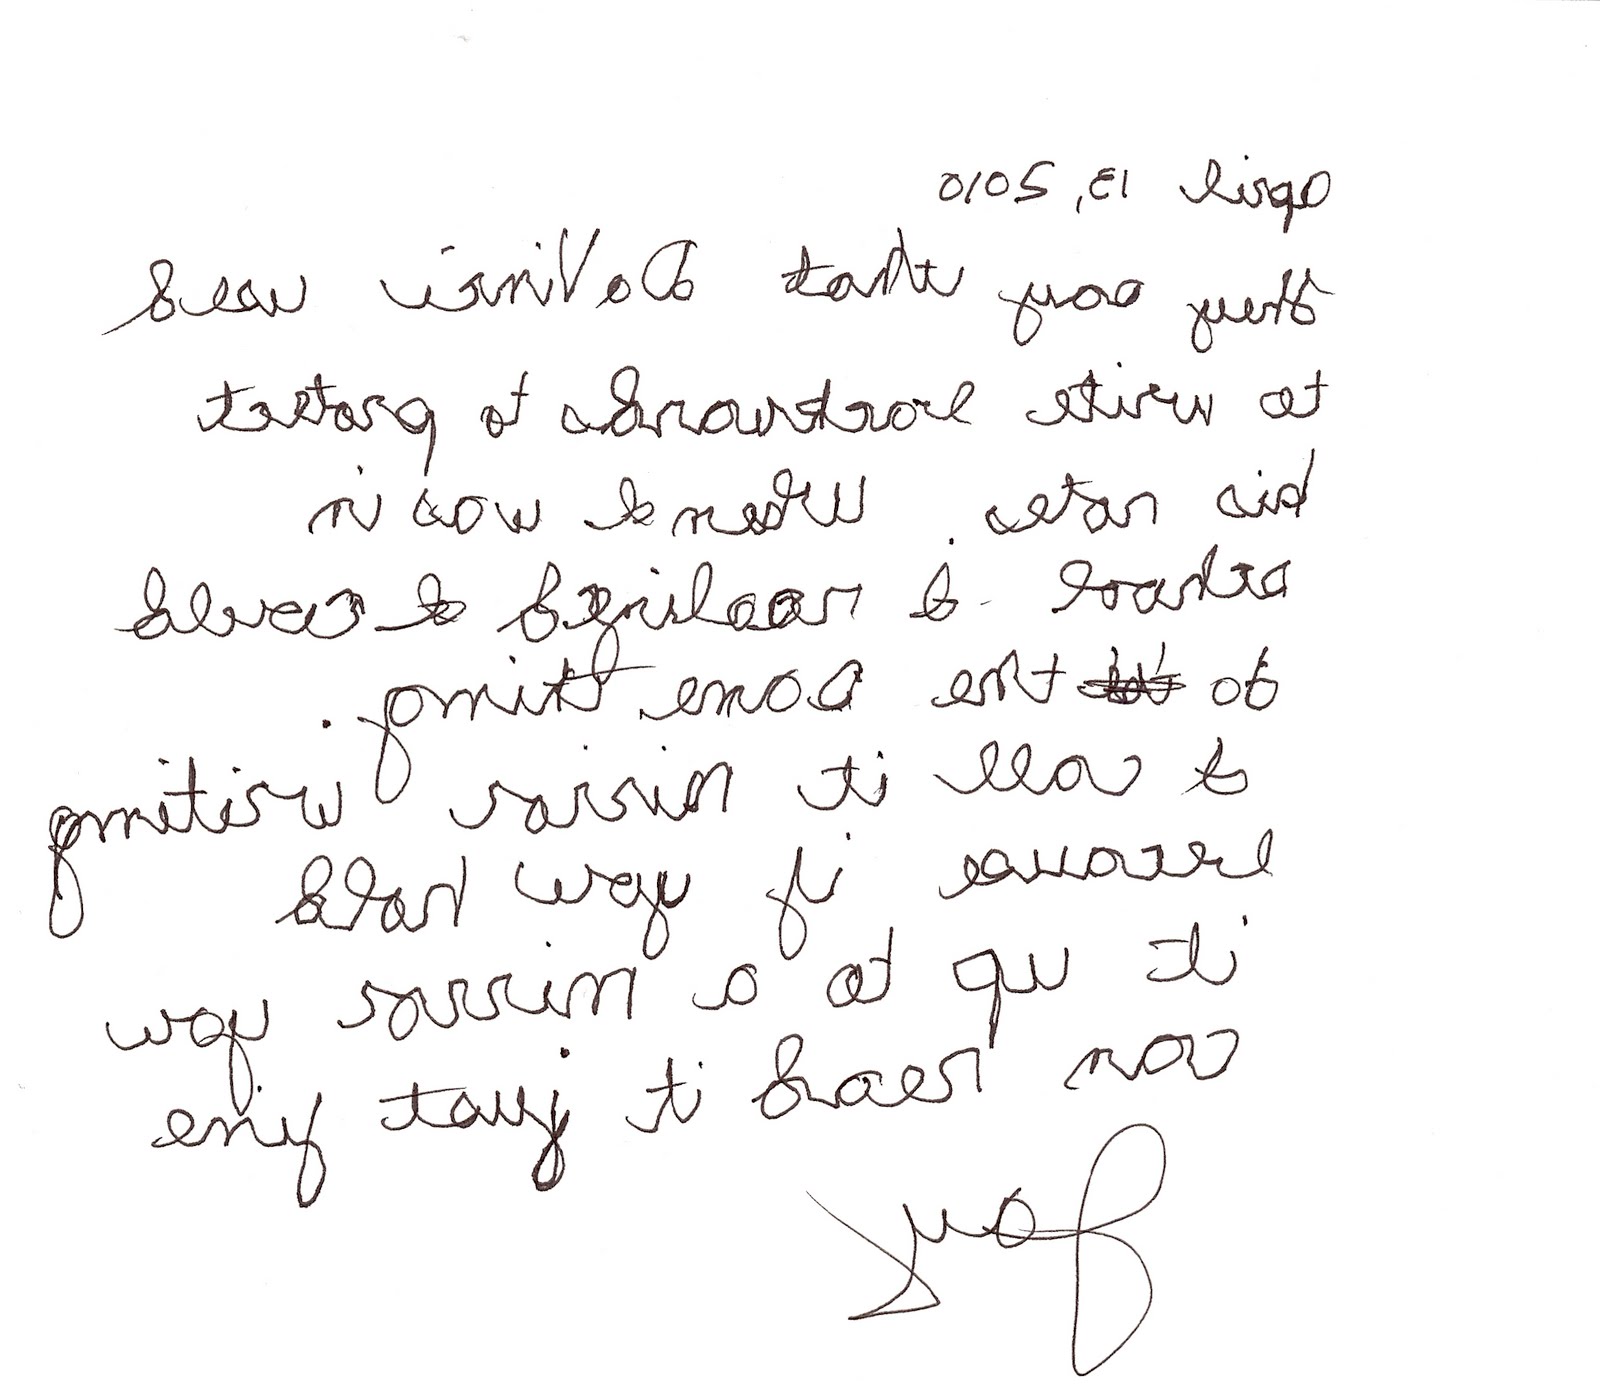 April 13, 2010
They say that DaVinci used
to write backwards to protect
his notes. When I was in
school I realized I could
do the same thing.
I call it mirror writing
because if you hold
it up to a mirror you
can read it just fine
Joy